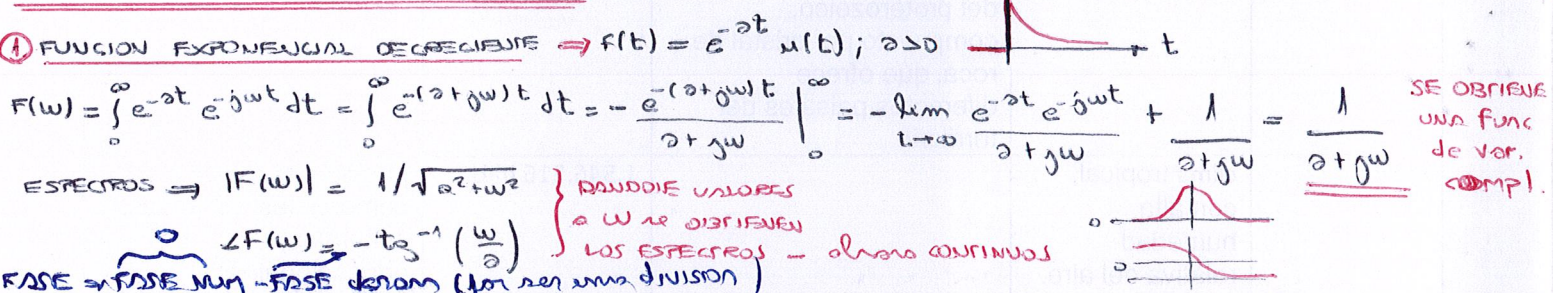 ① FUNCION EXPONENCIAL DECRECIENTE ⇒ f(t) = e^{-at} u(t); a>0
t
F(w) = ∫_0^∞ e^{-at} e^{-jwt} dt = ∫_0^∞ e^{-(a+jw)t} dt = - e^{-(a+jw)t} / (a+jw) |_0^∞ = - lim_{t→∞} e^{-at} e^{-jwt} / (a+jw) + 1/(a+jw) = 1/(a+jw)
SE OBTIENE
UNA FUNC
de var.
compl.
ESPECTROS ⇒ |F(w)| = 1/√(a²+w²)
∠F(w) = -tg^{-1} (w/a)
DANDOLE VALORES
a W se OBTIENEN
LOS ESPECTROS - ahora CONTINUOS
0
0
0
FASE = FASE NUM - FASE denom (por ser una division)